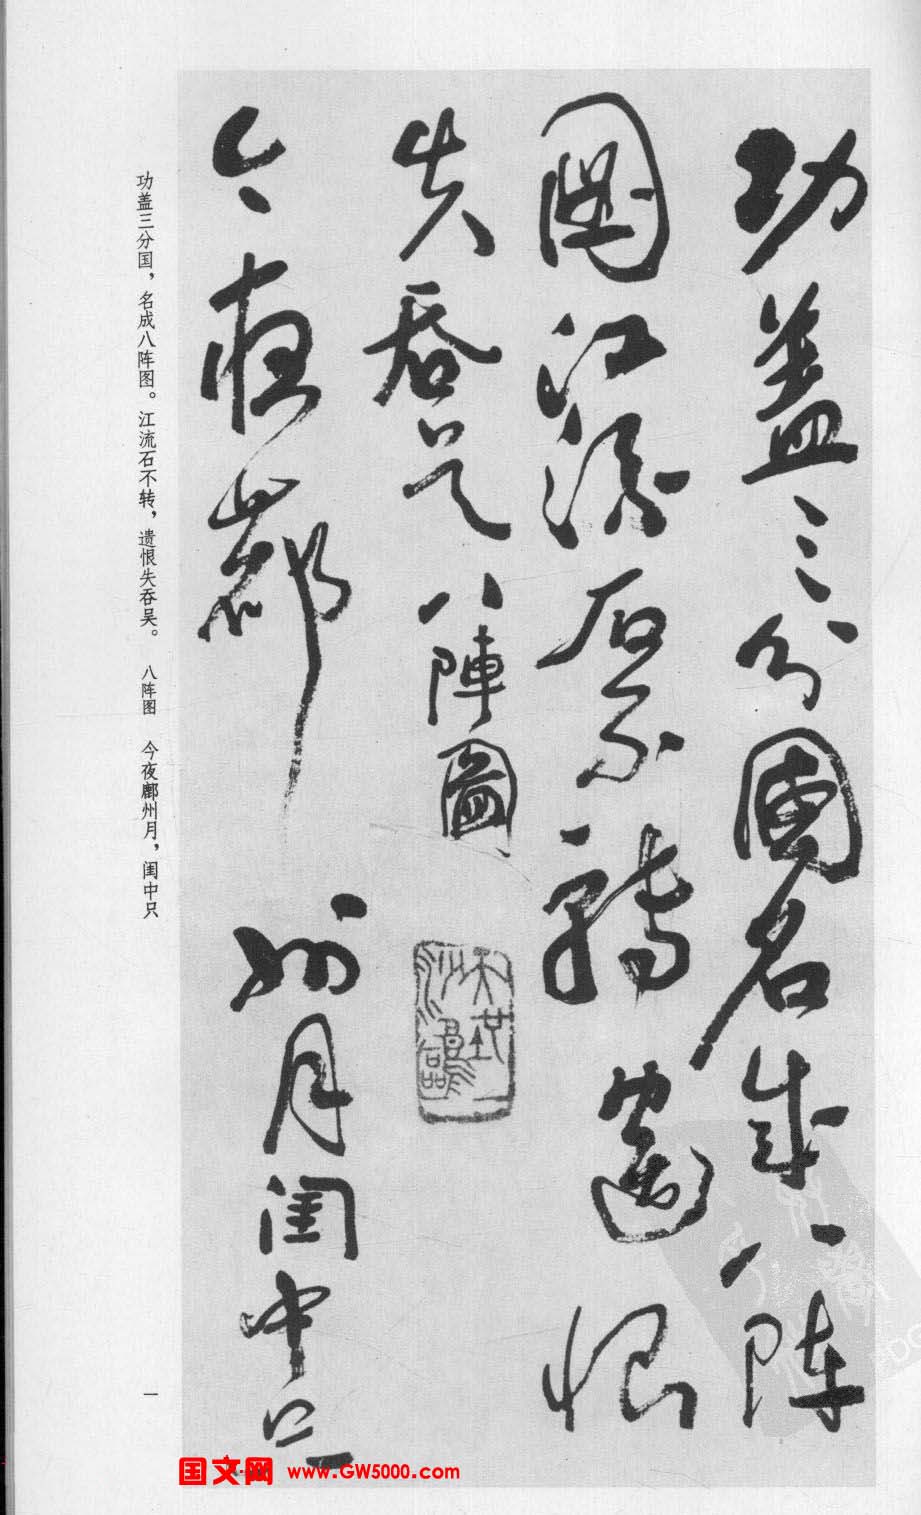 功盖三分國名成八阵
圖江流石不轉遺恨
失吞吴八陣圖
今夜鄜
州月闺中只
功盖三分国，名成八阵图。江流石不转，遗恨失吞吴。 八阵图 今夜鄜州月，闺中只
一
国文网 www.GW5000.com